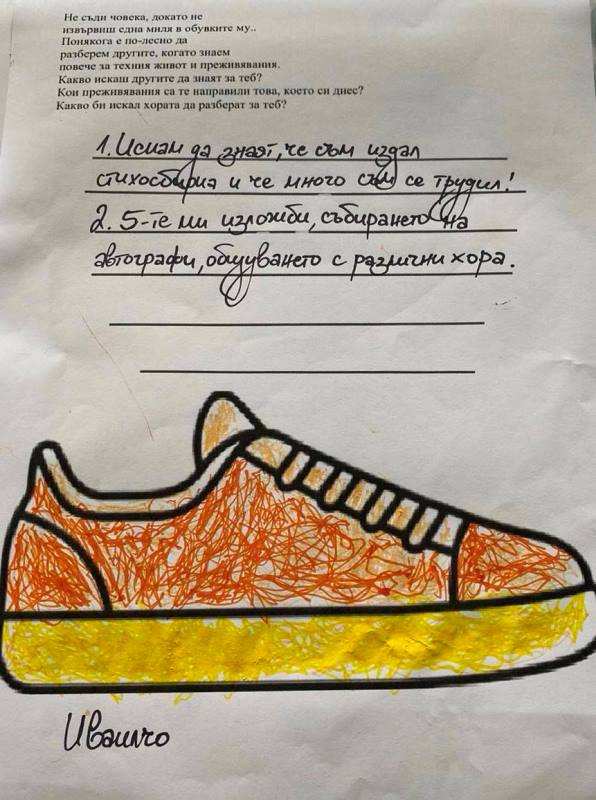 Не съди човека, докато не
извървиш една миля в обувките му..
Понякога е по-лесно да
разберем другите, когато знаем
повече за техния живот и преживявания.
Какво искаш другите да знаят за теб?
Кои преживявания са те направили това, което си днес?
Какво би искал хората да разберат за теб?
1. Искам да знаят, че съм издал
стихосбирка и че много съм се трудил!
2. 5-те ми изложби, събирането на
автографи, общуването с различни хора.
Ивайло